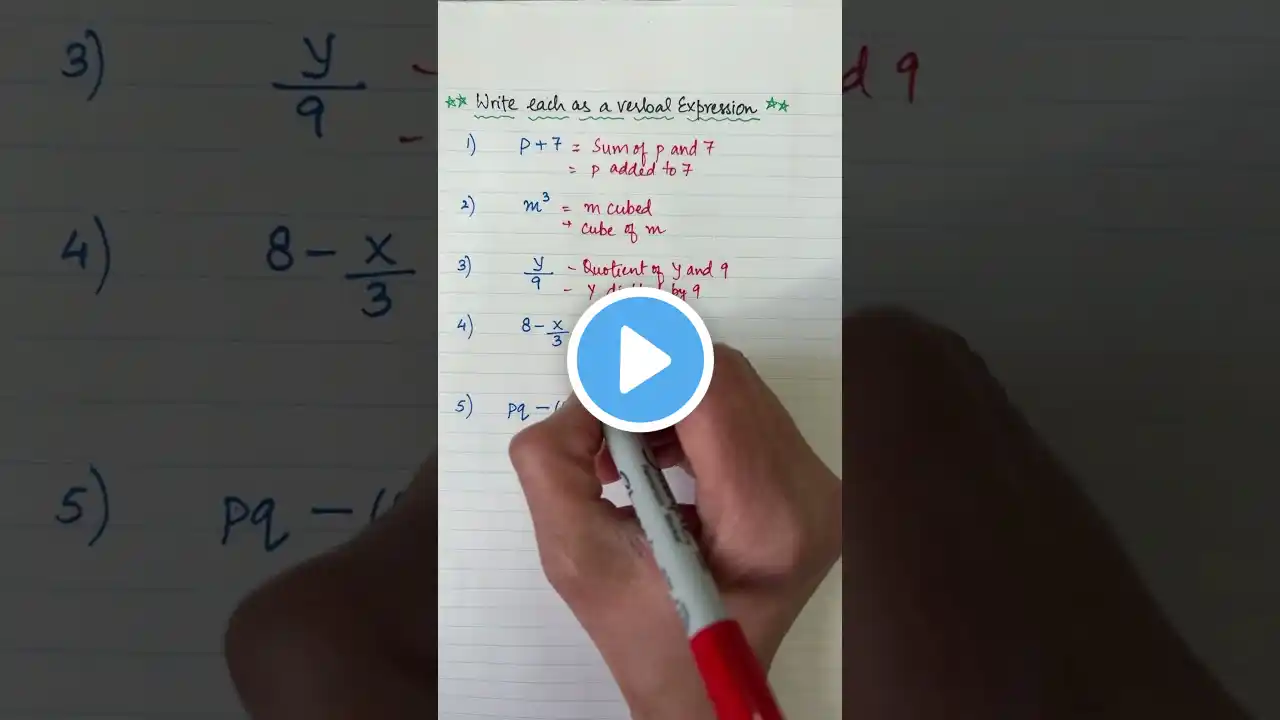 ** Write each as a verbal Expression **
1) p + 7 = Sum of p and 7
= p added to 7
2) m³ = m cubed
→ cube of m
3) y/9 - Quotient of y and 9
- y by 9
4) 8 - x/3
5) pq - (